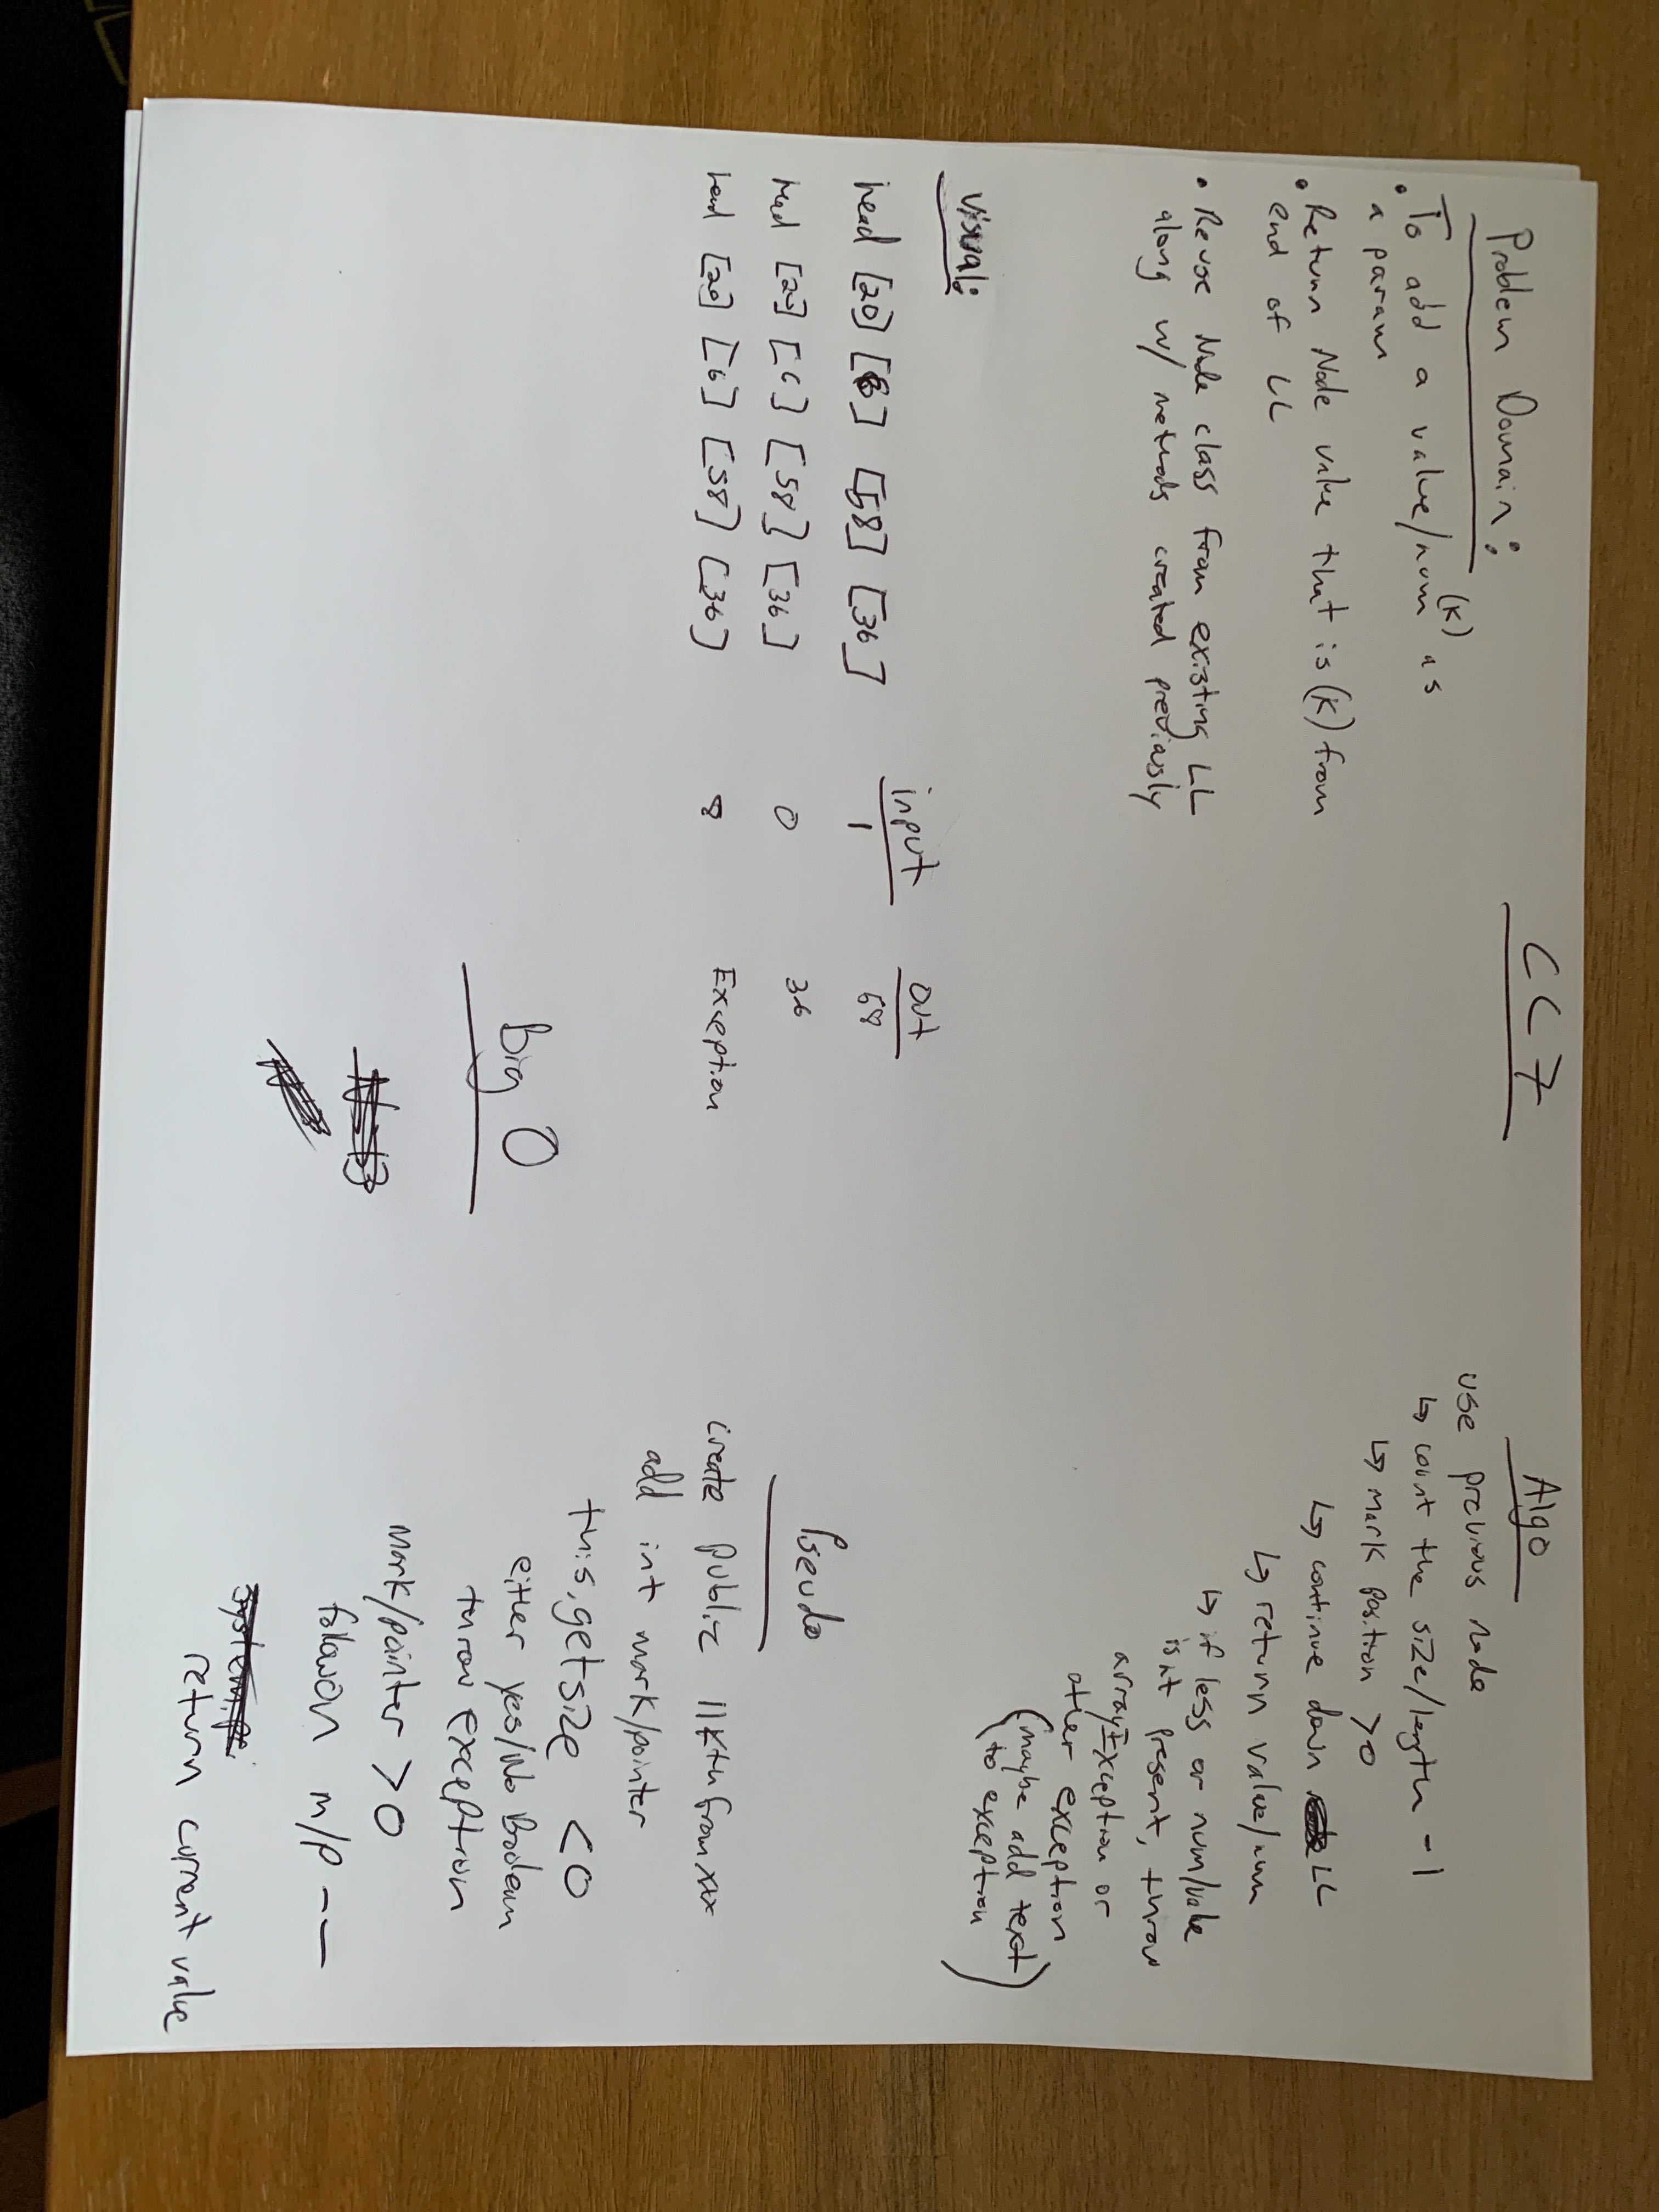 CC7
Problem Domain:
• To add a value/num (K) as
a param
• Return Node value that is (K) from
end of LL
• Reuse Node class from existing LL
along w/ methods created previously
Visual:
input
out
head [20] [6] [58] [36] 1 58
head [20] [6] [58] [36] 0 36
head [20] [6] [58] [36] 8 Exception
Big O
Algo
use previous node
↳ count the size/length -1
↳ mark position >0
↳ continue down LL
↳ return value/num
↳ if less or num/value
isnt present, throw
array Exception or
other exception
(maybe add text
to exception)
Pseudo
create public llKthFrom
add int mark/pointer
this.getsize <0
either yes/No Boolean
throw exception
mark/pointer >0
follow m/p --
return current value